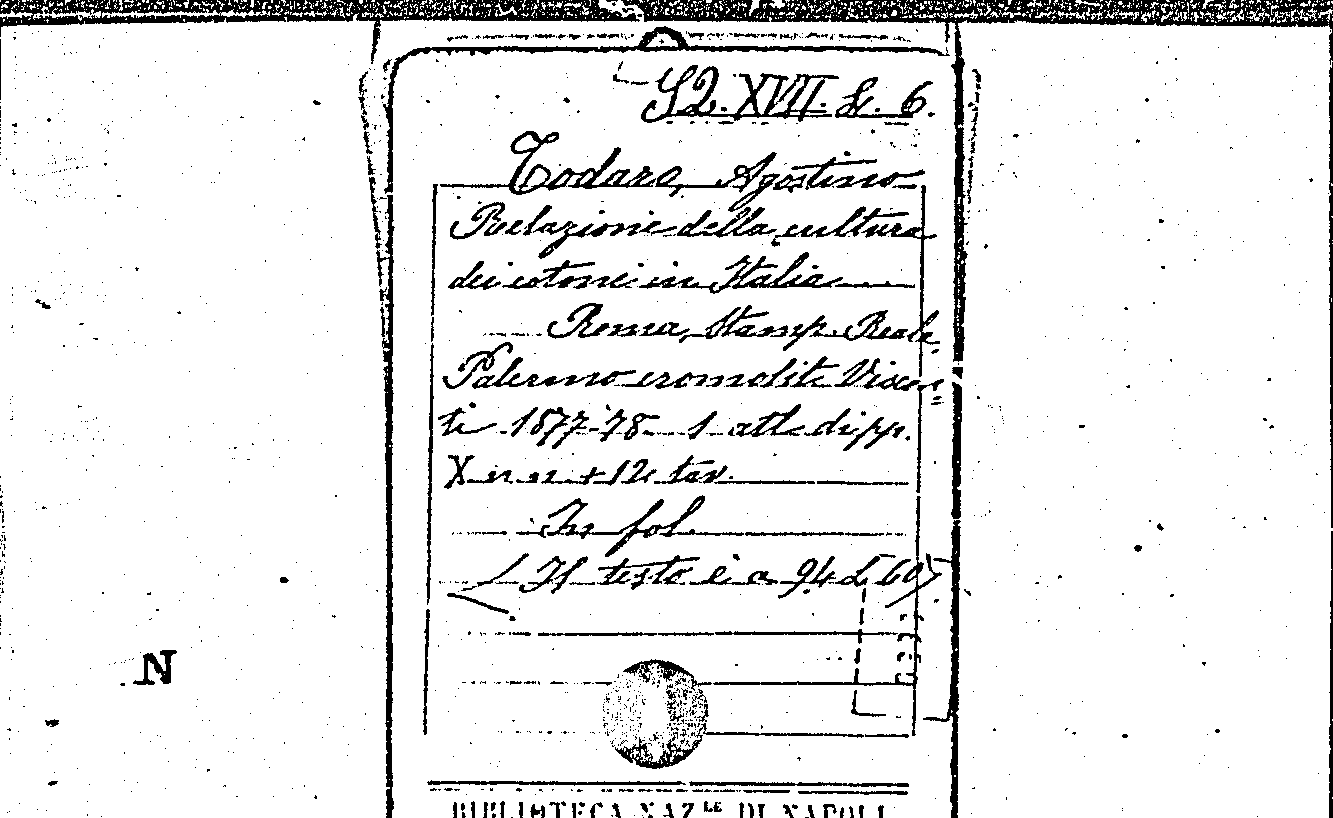 S2. XVII. L. 6.
Todaro, Agostino
Relazione della cultura
dei cotoni in Italia
Roma, Stamp. Reale,
Palermo cromolit. Viscon=
ti 1877-78 1 atl. di pp.
X n n + 12 tav.
In fol.
(Il testo è a 94 L 60)
N
BIBLIOTECA NAZ.LE DI NAPOLI